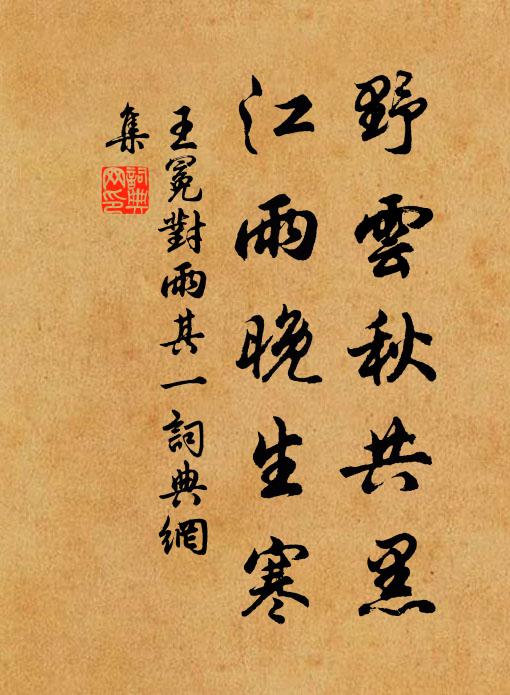 野雲秋共黑
江雨晚生寒
王冕對雨其一詞典網
集
詞典
网印